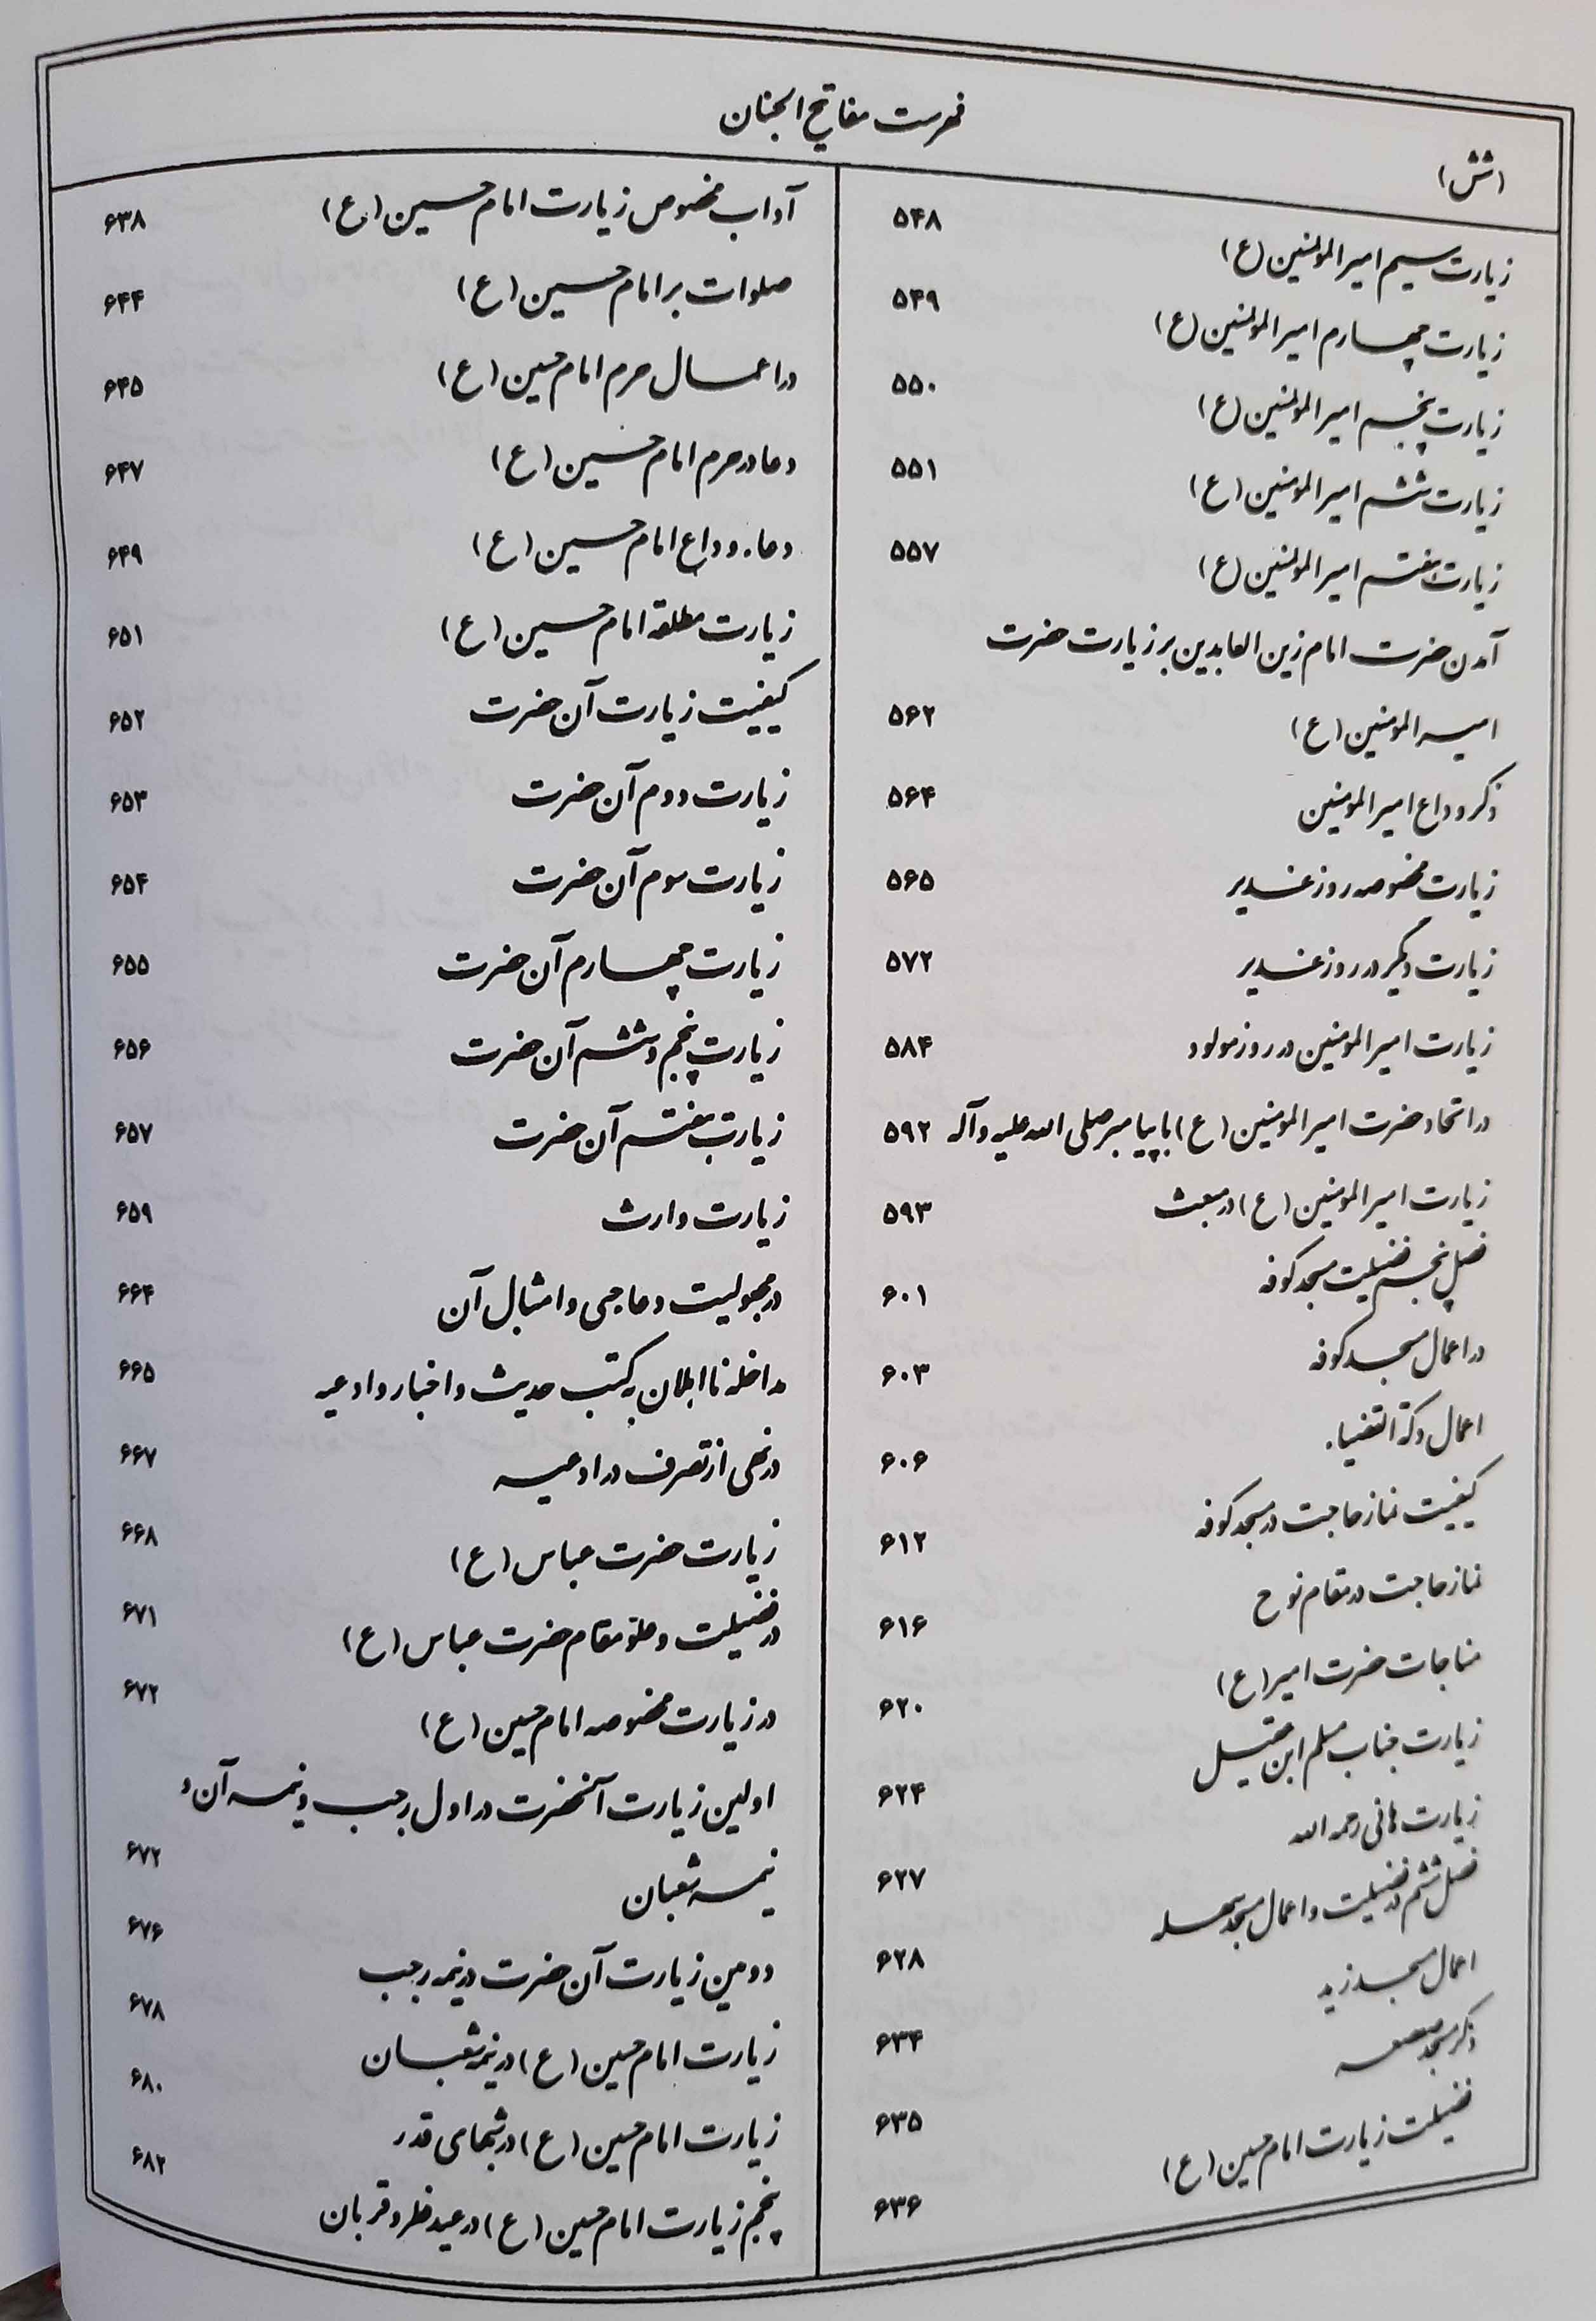 فهرست مفاتیح الجنان
(شش)
زیارت سیم امیرالمؤمنین (ع) ۵۴۸
زیارت چهارم امیرالمؤمنین (ع) ۵۴۹
زیارت پنجم امیرالمؤمنین (ع) ۵۵۰
زیارت ششم امیرالمؤمنین (ع) ۵۵۱
زیارت هفتم امیرالمؤمنین (ع) ۵۵۷
آمدن حضرت امام زین العابدین بر زیارت حضرت
امیرالمؤمنین (ع) ۵۶۲
ذکر وداع امیرالمؤمنین ۵۶۴
زیارت مخصوصه روز غدیر ۵۶۵
زیارت دیگر در روز غدیر ۵۷۲
زیارت امیرالمؤمنین در روز مولود ۵۸۴
در اتحاد حضرت امیرالمؤمنین (ع) با پیامبر صلی الله علیه و آله ۵۹۲
زیارت امیرالمؤمنین (ع) در مبعث ۵۹۳
فصل پنجم فضیلت مسجد کوفه ۶۰۱
در اعمال مسجد کوفه ۶۰۳
اعمال دکة القضاء ۶۰۶
کیفیت نماز حاجت در مسجد کوفه ۶۱۲
نماز حاجت در مقام نوح ۶۱۶
مناجات حضرت امیر (ع) ۶۲۰
زیارت جناب مسلم ابن عقیل ۶۲۴
زیارت هانی رحمه الله ۶۲۷
فصل ششم در فضیلت و اعمال مسجد سهله ۶۲۸
اعمال مسجد زید ۶۳۴
ذکر مسجد صعصعه ۶۳۵
فضیلت زیارت امام حسین (ع) ۶۳۶
آداب مخصوص زیارت امام حسین (ع) ۶۳۸
صلوات بر امام حسین (ع) ۶۴۴
در اعمال حرم امام حسین (ع) ۶۴۵
دعا در حرم امام حسین (ع) ۶۴۷
دعاء وداع امام حسین (ع) ۶۴۹
زیارت مطلقه امام حسین (ع) ۶۵۱
کیفیت زیارت آن حضرت ۶۵۲
زیارت دوم آن حضرت ۶۵۳
زیارت سوم آن حضرت ۶۵۴
زیارت چهارم آن حضرت ۶۵۵
زیارت پنجم و ششم آن حضرت ۶۵۶
زیارت هفتم آن حضرت ۶۵۷
زیارت وارث ۶۵۹
در مجعولیت دعا حبی و امثال آن ۶۶۴
مداخله نااهلان به کتب حدیث و اخبار و ادعیه ۶۶۵
در نهی از تصرف در ادعیه ۶۶۷
زیارت حضرت عباس (ع) ۶۶۸
در فضیلت و علو مقام حضرت عباس (ع) ۶۷۱
در زیارت مخصوصه امام حسین (ع) ۶۷۲
اولین زیارت آنحضرت در اول رجب و نیمه آن و
نیمه شعبان ۶۷۲
دومین زیارت آن حضرت در نیمه رجب ۶۷۶
زیارت امام حسین (ع) در نیمه شعبان ۶۷۸
زیارت امام حسین (ع) در شبهای قدر ۶۸۰
پنجم زیارت امام حسین (ع) در عید فطر و قربان ۶۸۲